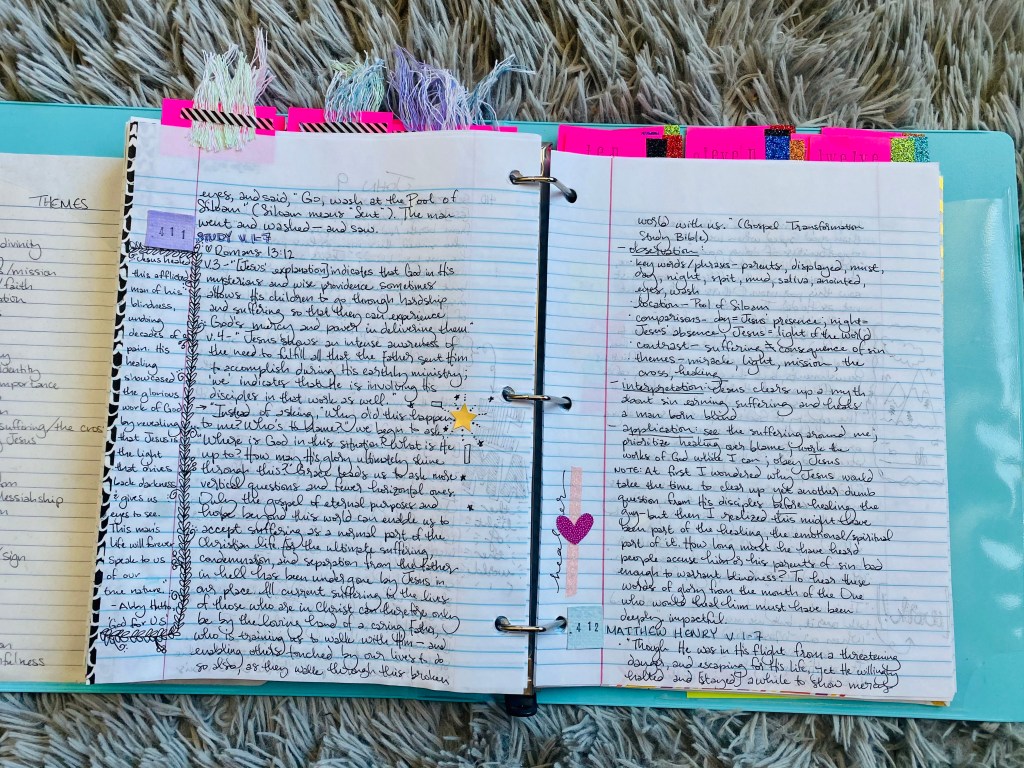 THEMES
divinity
/mission
/faith
identity
importance
suffering/the cross
Jesus
messiahship
/sign
ten
eleven
twelve
eyes, and said, "Go, wash at the Pool of
Siloam" (Siloam means "Sent"). The man
went and washed — and saw.
411
STUDY V. 1-7
Romans 13:12
V.3 - "[Jesus' explanation] indicates that God in His
mysterious and wise providence sometimes
allows His children to go through hardship
and suffering, so that they can experience
God's mercy and power in delivering them"
V.4 - "Jesus shows an intense awareness of
the need to fulfill all that the Father sent Him
to accomplish during His earthly ministry;
'we' indicates that He is involving His
disciples in that work as well."
→ "Instead of asking, 'Why did this happen
to me? Who's to blame?' we begin to ask
'Where is God in this situation? What is He
up to? How may His glory ultimately shine
through this?' Grace leads us to ask more
vertical questions and fewer horizontal ones.
Only the gospel of eternal purposes and
hope beyond this world can enable us to
accept suffering as a normal part of the
Christian life, for the ultimate suffering,
condemnation, and separation from the Father
in hell has been undergone by Jesus in
our place. All current suffering in the lives
of those who are in Christ can therefore only
be by the loving hand of a caring Father,
who is training us to walk with Him — and
enabling others touched by our lives to do
so also, as they walk through this broken
Jesus healed
this afflicted
man of his
blindness,
undoing
decades of
pain. His
healing
showcased
the glorious
work of God
by revealing
that Jesus is
the light
that drives
back darkness
& gives us
eyes to see.
This man's
life will forever
speak to us
of our
true nature."
God for US
world with us." (Gospel Transformation
Study Bible)
- observation:
· key words/phrases - parents, displayed, must,
day, night, spit, mud, saliva, anointed,
eyes, wash
· location - Pool of Siloam
· comparisons - day = Jesus' presence; night =
Jesus' absence; Jesus = light of the world
· contrast - suffering ≠ consequence of sin
· themes - miracle, light, mission, the
cross, healing
- interpretation: Jesus clears up a myth
about sin earning suffering and heals
a man born blind
- application: see the suffering around me;
prioritize healing over blame; work the
works of God while I can; obey Jesus
NOTE: At first I wondered why Jesus would
take the time to clear up yet another dumb
question from His disciples before healing the
guy - but then I realized this might have
been part of the healing, the emotional/spiritual
part of it. How long must he have heard
people accuse him or his parents of sin bad
enough to warrant blindness? To hear these
words of glory from the mouth of the One
who would heal him must have been
deeply impactful.
healer
412
MATTHEW HENRY V. 1-7
· "Though He was in His flight from a threatening
danger, and escaping for His life, yet He willingly
halted and [stayed] awhile to show mercy